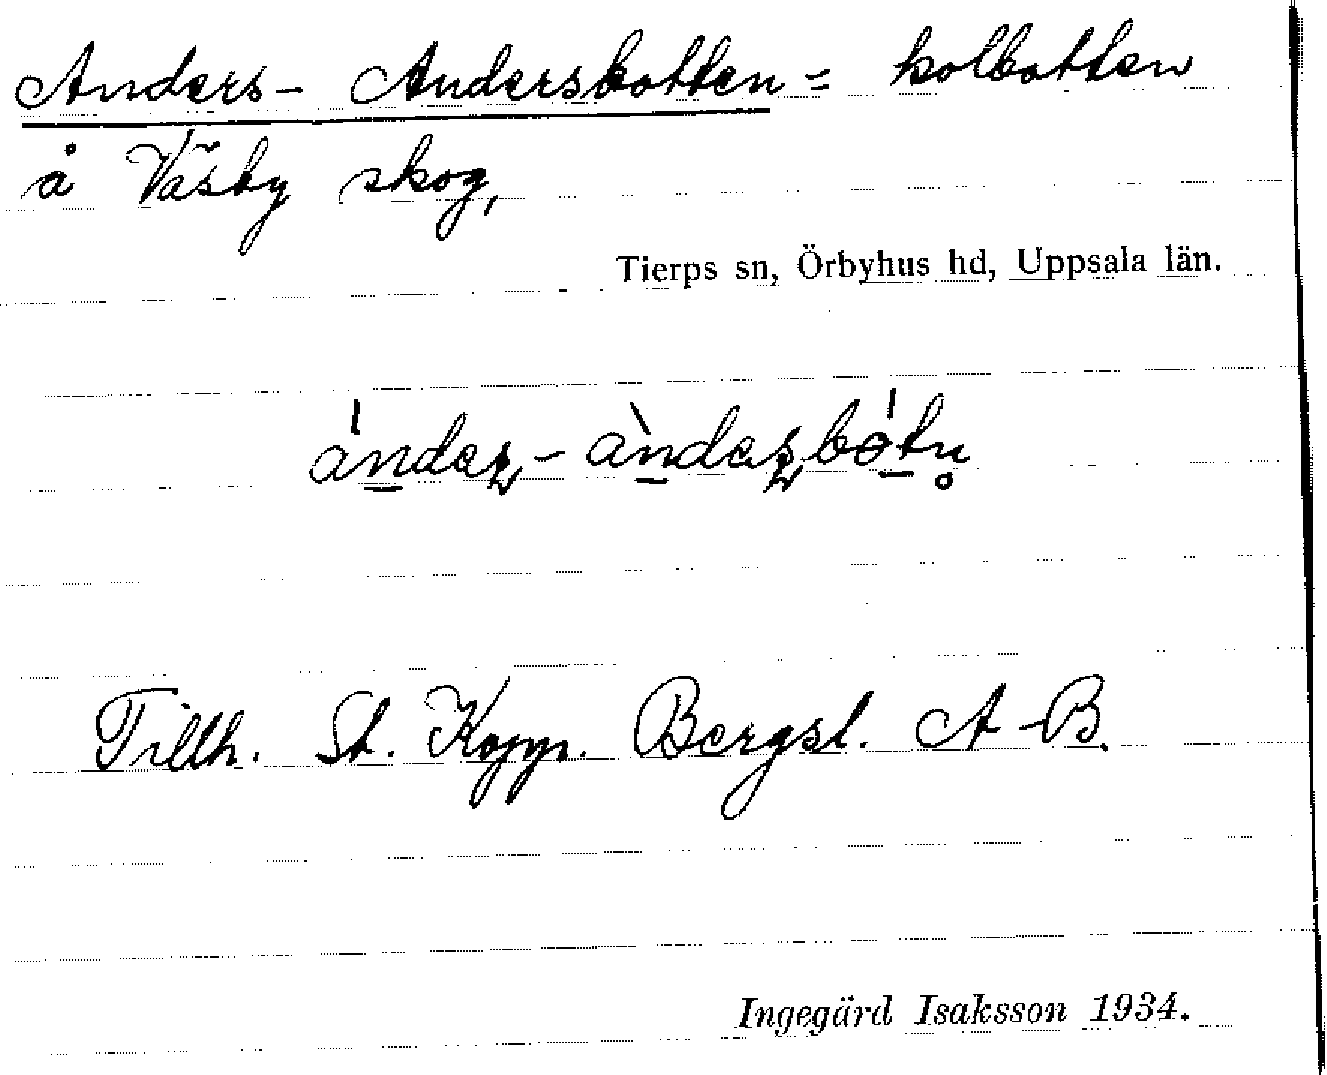 Anders-Andersbotten = kolbotten
å Väsby skog,
Tierps sn, Örbyhus hd, Uppsala län.
ándaʂ-àndaʂbótn̥
Tillh. St. Kopp. Bergsl. A-B.
Ingegärd Isaksson 1934.